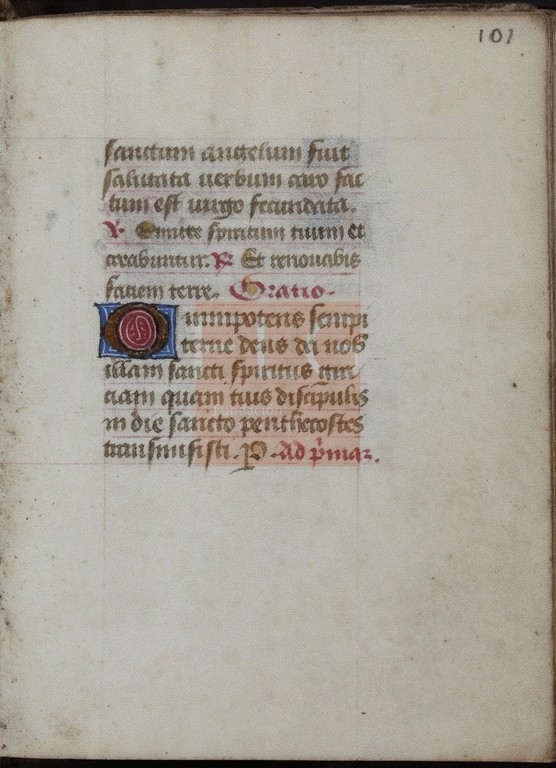 101
sanctum angelum fuit
salutata uerbum caro fac
tum est uirgo fecundata.
V. Emitte spiritum tuum et
creabuntur. R. Et renouabis
faciem terre. Oratio.
Omnipotens sempi
terne deus da nobis
illam sancti spiritus gra
ciam quam tuis discipulis
in die sancto penthecostes
transmisisti. P. Ad p̄maz.